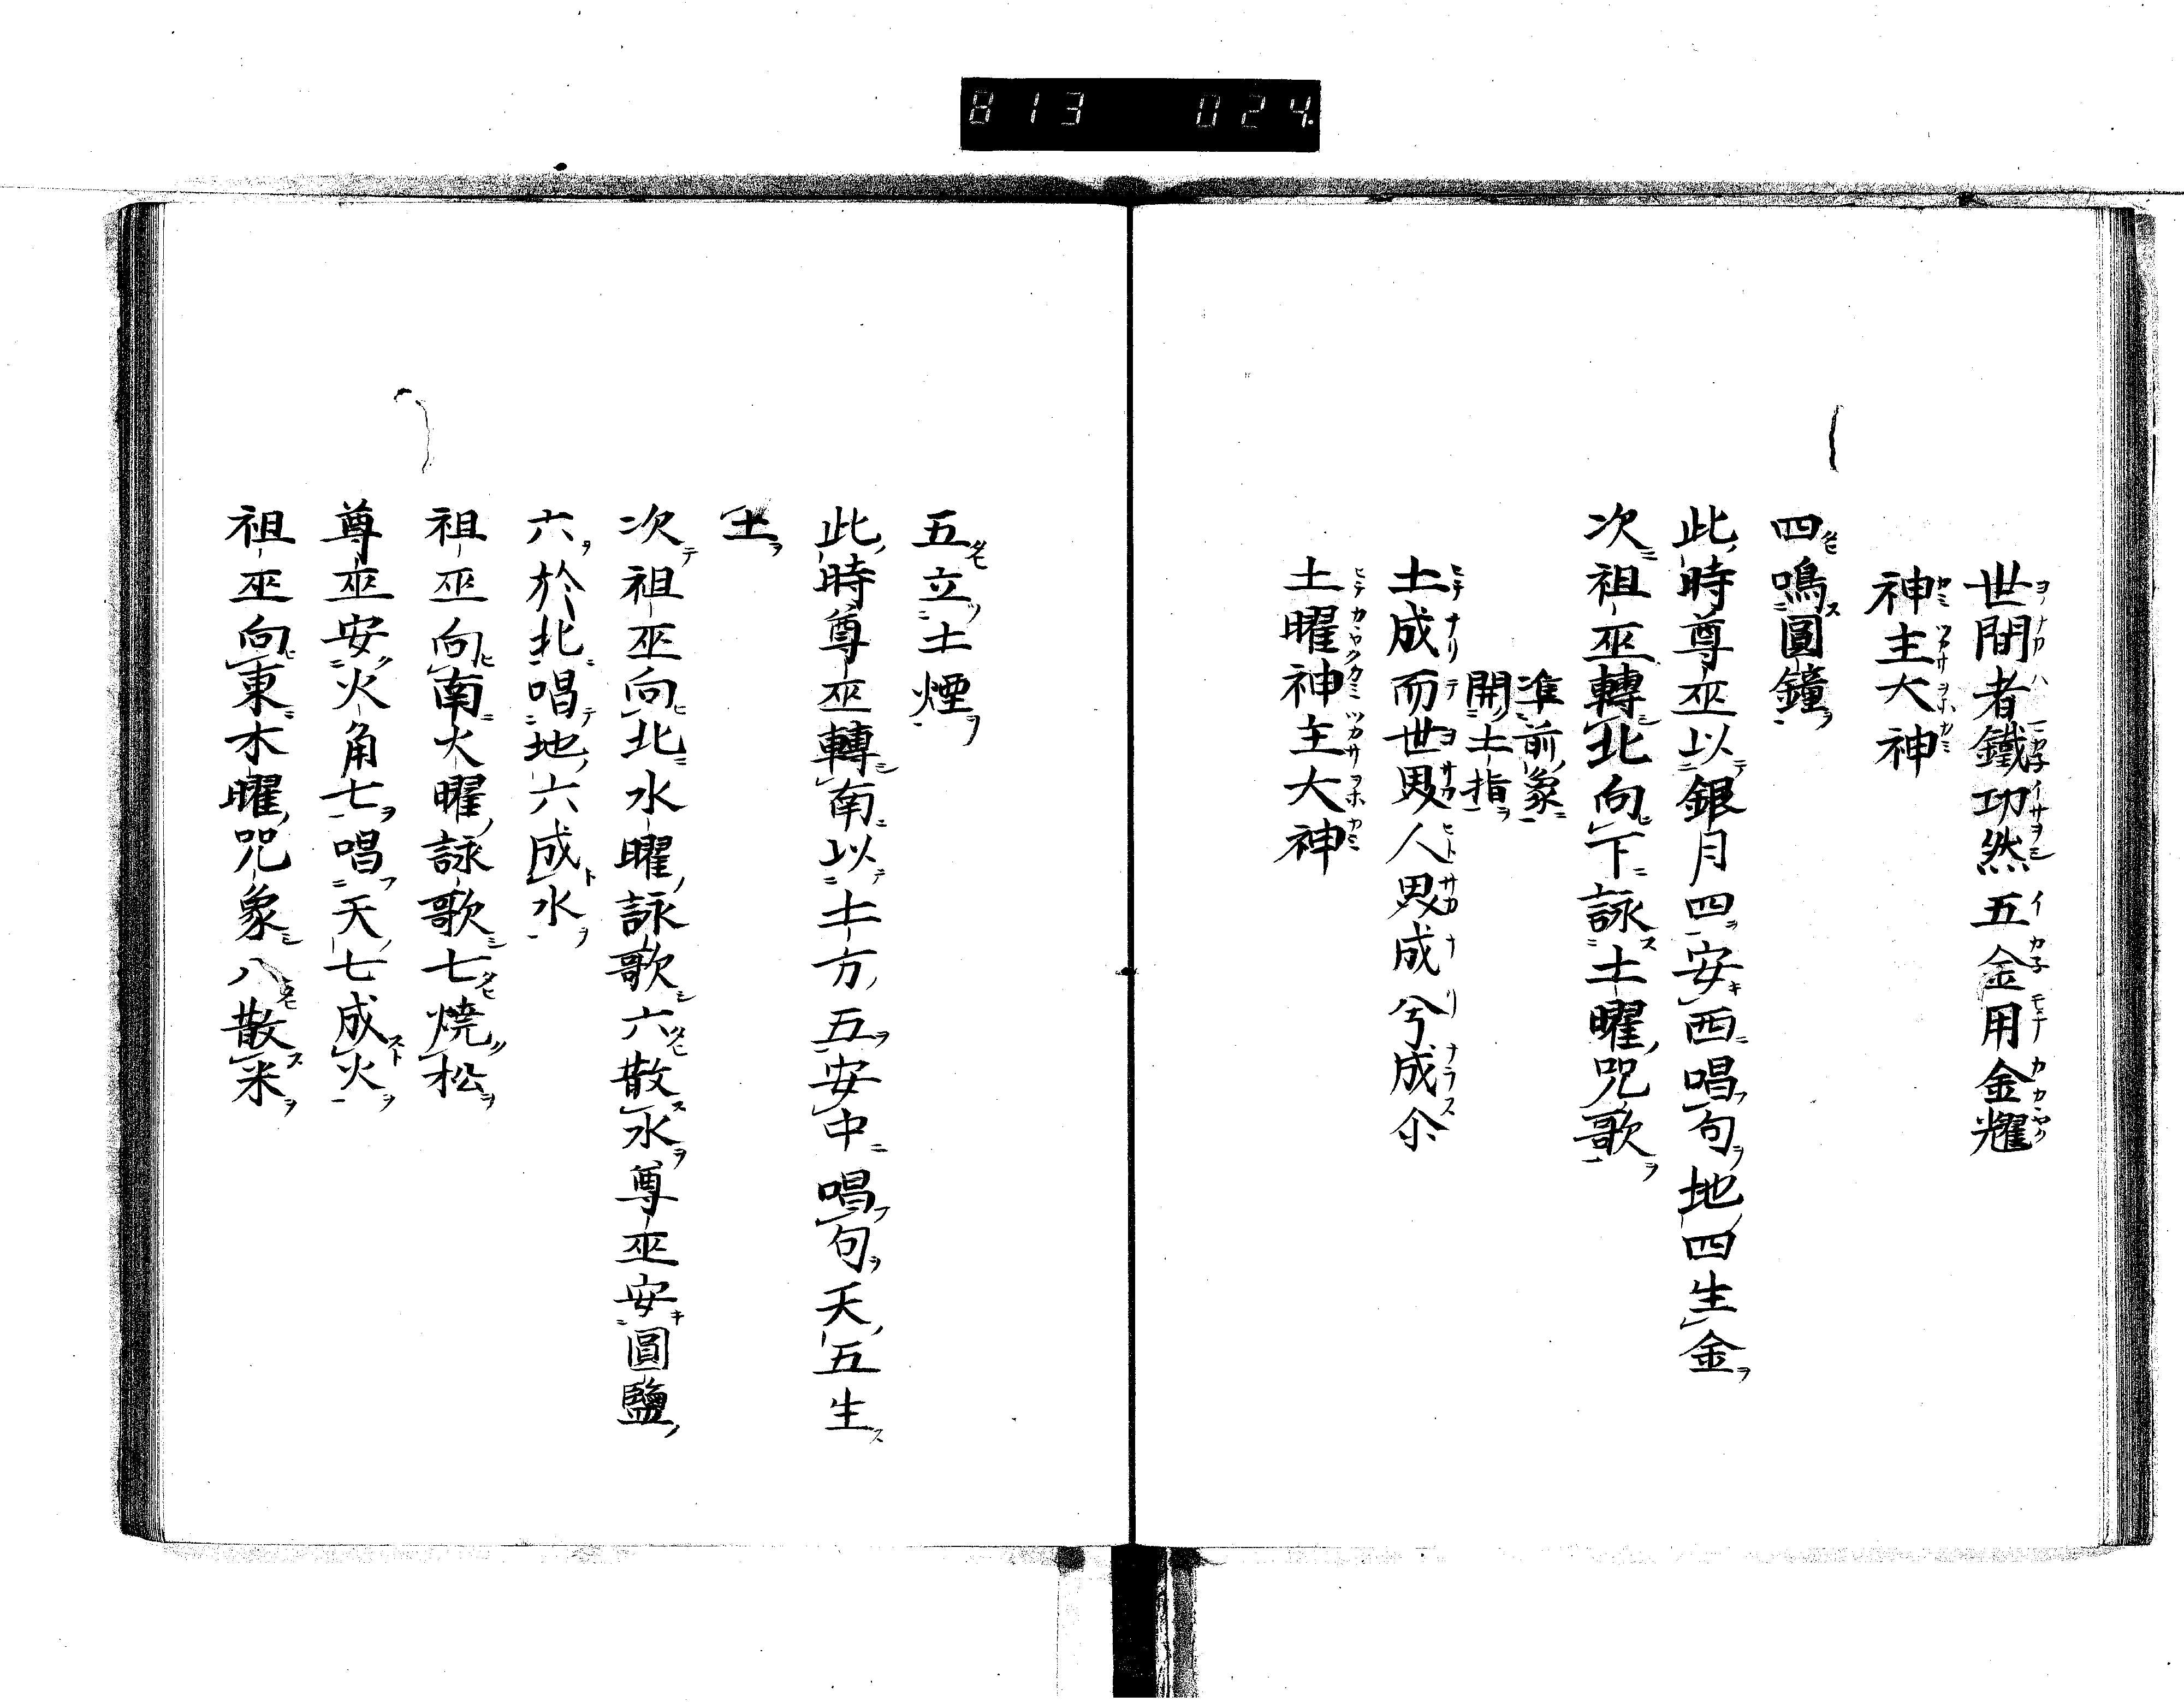 813 024
世間者鐵功然五金用金耀
神主大神
四鳴圓鐘
此時尊巫以銀月四安西唱句地四生金
次祖巫轉北向下詠土曜咒歌
准前象
開土指
土成而世男人男成兮成尒
土曜神主大神
五立土煙
此時尊巫轉南以土方五安中唱句天五生
土
次祖巫向北水曜詠歌六散水尊巫安圓鹽
六於北唱地六成水
祖巫向南火曜詠歌七燒松
尊巫安火角七唱天七成火
祖巫向東木曜咒象八散米